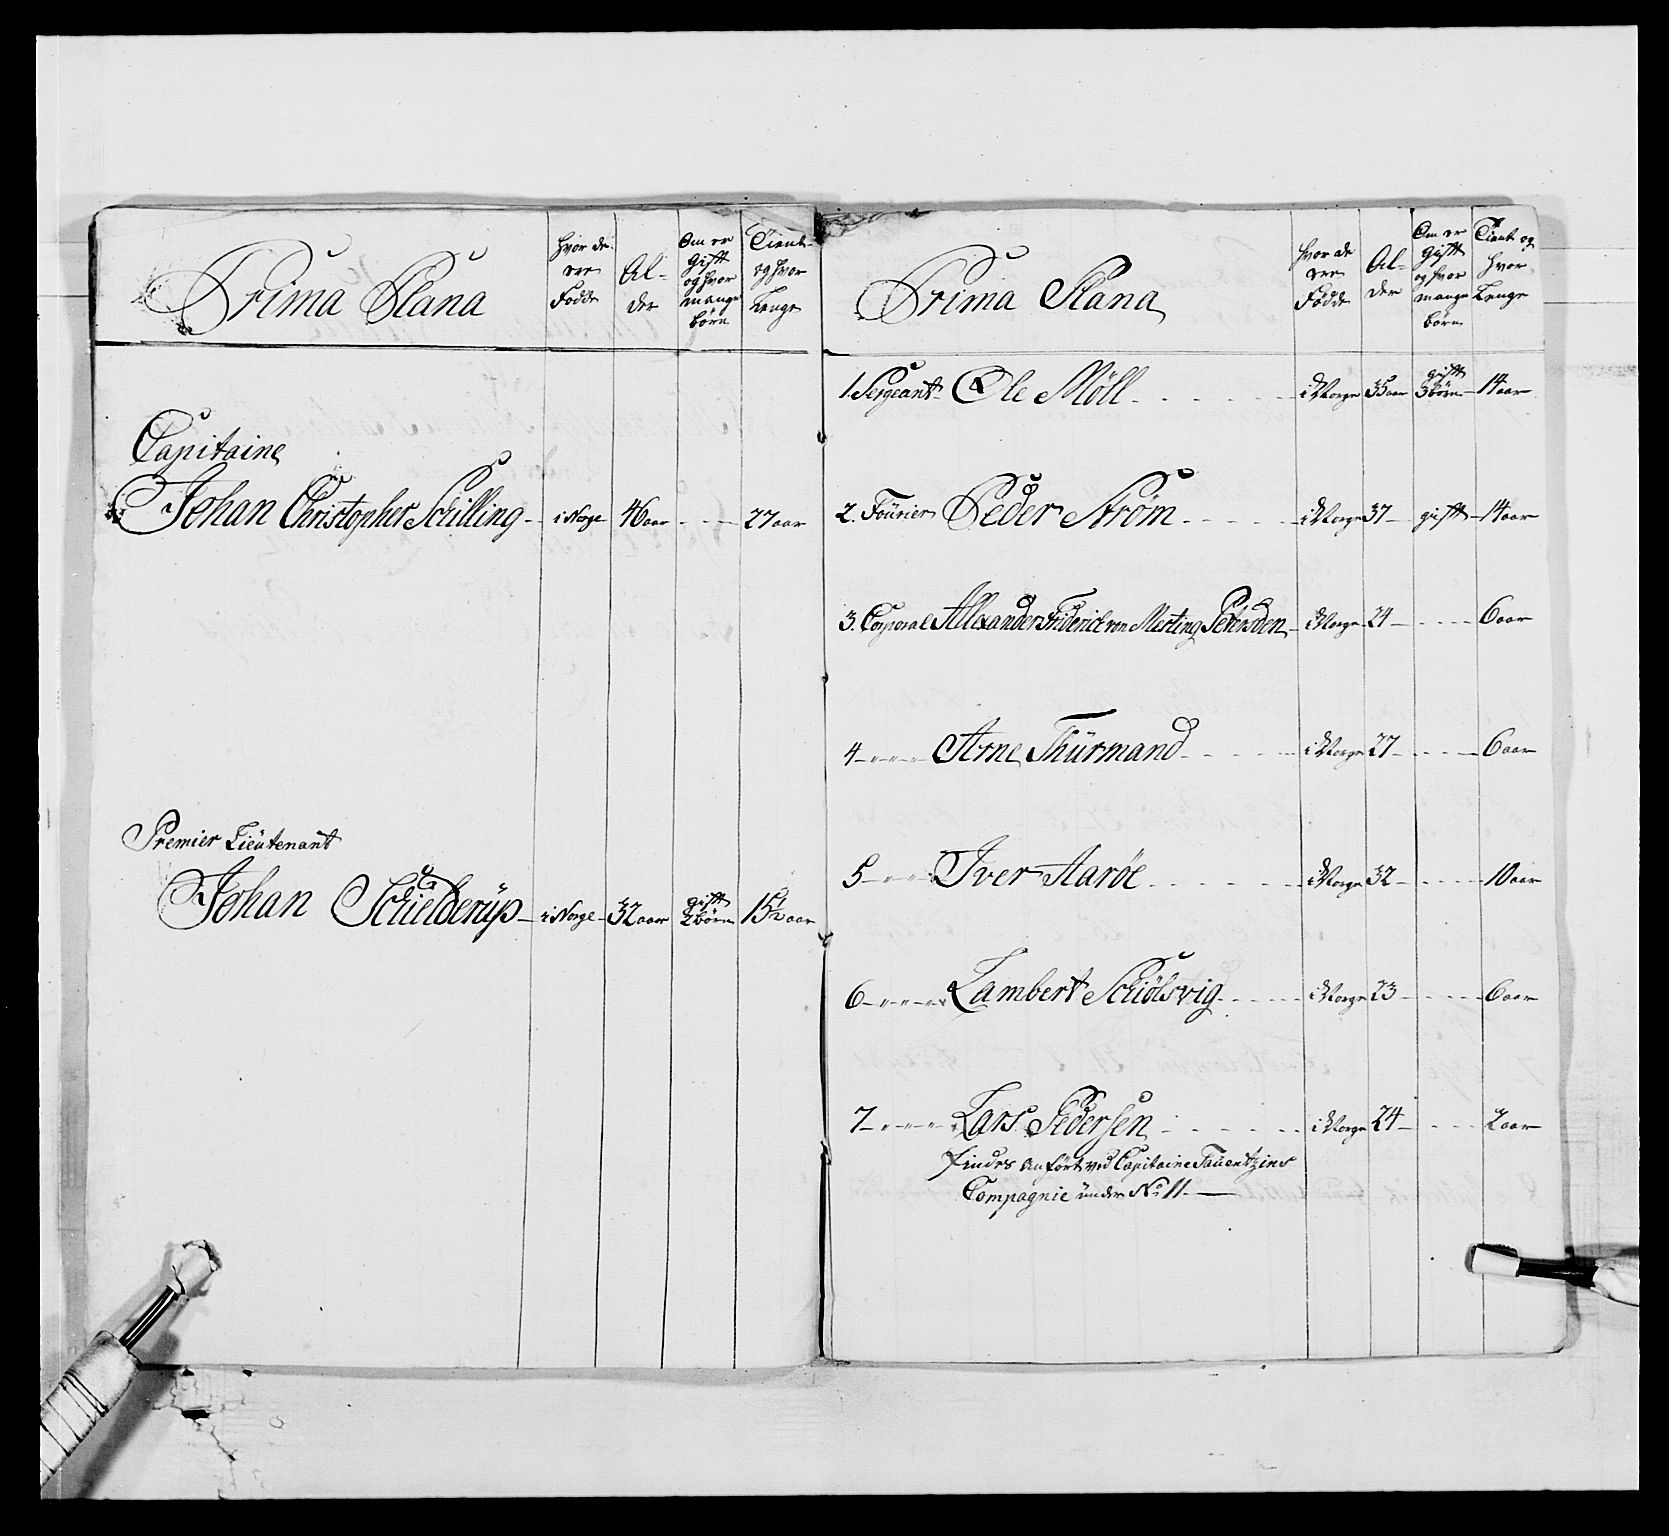 Prima Plana
hvor de
ere
Fødde
Al-
der
Om er
gifft
og hvor
mange
børn
Tient
og hvor
Lenge
Capitaine
Johan Christopher Schilling - i Norge 46 aar - - - 27 aar
Premier Lieütenant
Johan Schielderüp - i Norge - 32 aar gifft 2 børn 15½ aar
Prima Plana
hvor de
ere
Fødde
Al-
der
Om er
gifft
og hvor
mange
børn
Tient og
hvor
Lenge
1. Sergeant Ole Møll - - - - i Norge 35 aar gifft 3 børn - 14 aar
2. Foürier Peder Strøm - - - - i Norge 37 - gifft - 14 aar
3. Corporal Allexander Friderich von Mesting Petersden - i Norge 24 - - - - 6 aar
4 - " - " - Arne Thürmand - - - - i Norge 27 - - - - 6 aar
5 - " - " - Iver Aarøe - - - - i Norge 32 - - - - 10 aar
6 - " - " - Lambert Schiølsvig - - - - i Norge 23 - - - - 6 aar
7 - " - " - Lars Pedersen - - - - i Norge 24 - - - - 2 aar
findes anført ved Capitaine Tauentzins
Compagnie ünder No 11. —